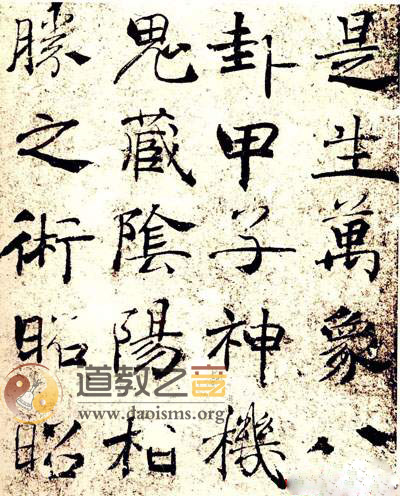 是生萬象八
卦甲子神機
鬼藏陰陽相
勝之術昭昭
道教之音
www.daoisms.org